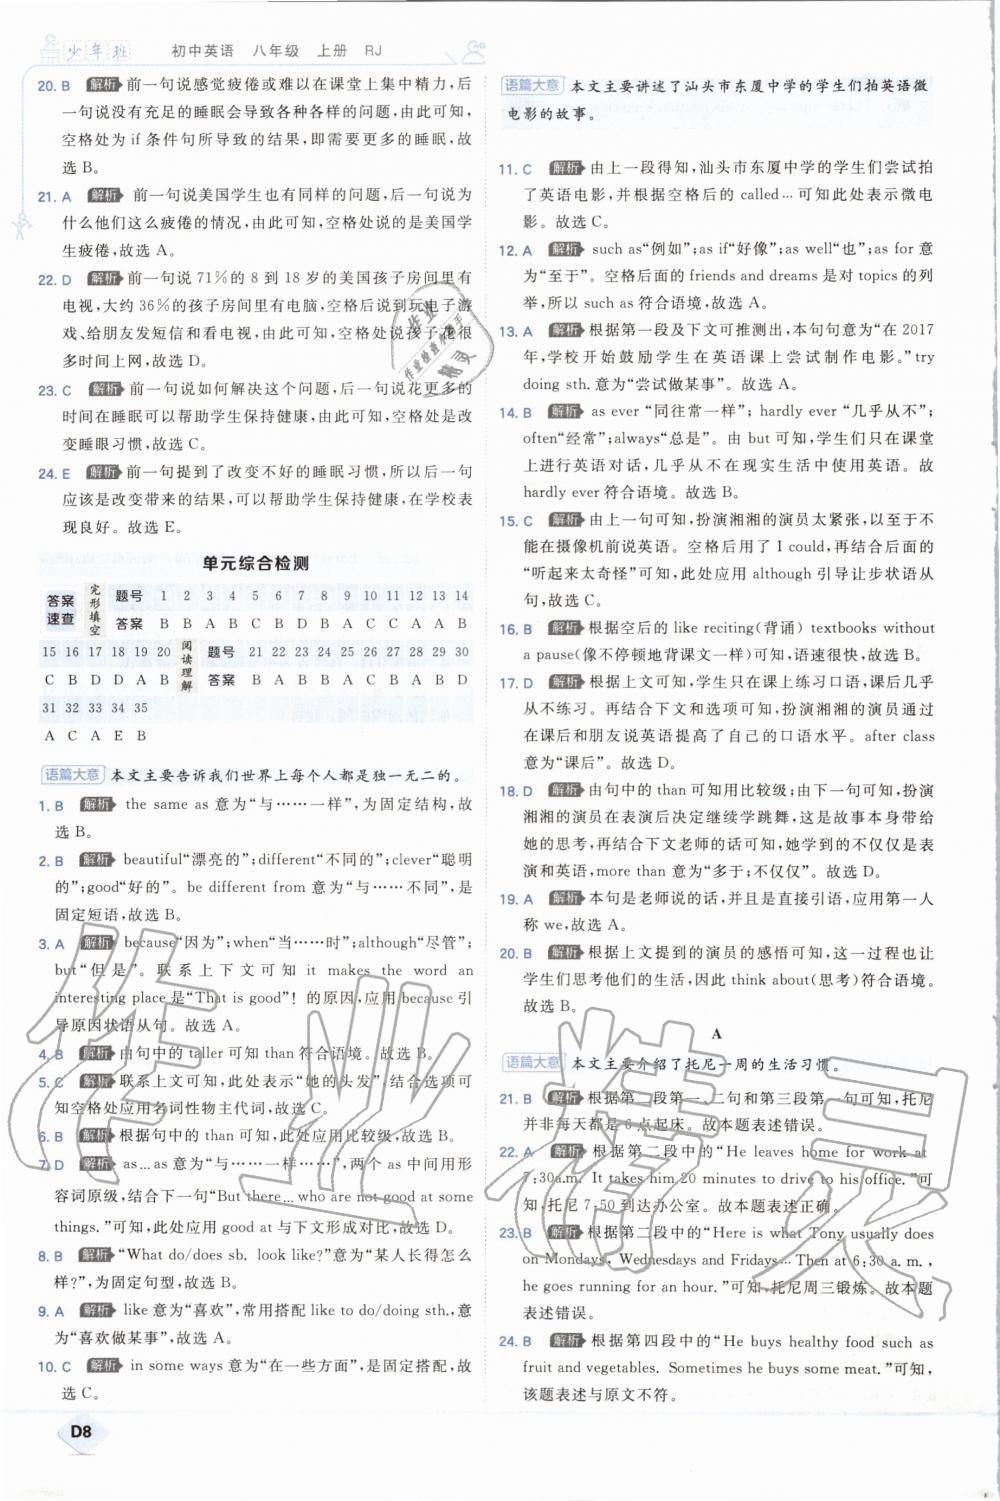 少年班 初中英语 八年级 上册 RJ
20. B 解析 前一句说感觉疲倦或难以在课堂上集中精力,后
一句说没有充足的睡眠会导致各种各样的问题,由此可知,
空格处为 if 条件句所导致的结果,即需要更多的睡眠,故
选 B。
21. A 解析 前一句说美国学生也有同样的问题,后一句说为
什么他们这么疲倦的情况,由此可知,空格处说的是美国学
生疲倦,故选 A。
22. D 解析 前一句说 71%的 8 到 18 岁的美国孩子房间里有
电视,大约 36%的孩子房间里有电脑,空格后说到玩电子游
戏、给朋友发短信和看电视,由此可知,空格处说孩子花很
多时间上网,故选 D。
23. C 解析 前一句说如何解决这个问题,后一句说花更多的
时间在睡眠可以帮助学生保持健康,由此可知,空格处是改
变睡眠习惯,故选 C。
24. E 解析 前一句提到了改变不好的睡眠习惯,所以后一句
应该是改变带来的结果,可以帮助学生保持健康,在学校表
现良好。故选 E。
单元综合检测
答案速查 完形填空 题号 1 2 3 4 5 6 7 8 9 10 11 12 13 14
答案 B B A B C B D B A C C A A B
15 16 17 18 19 20 阅读理解 题号 21 22 23 24 25 26 27 28 29 30
C B D D A B 答案 B A B B A B C B D B
31 32 33 34 35
A C A E B
语篇大意 本文主要告诉我们世界上每个人都是独一无二的。
1. B 解析 the same as 意为“与……一样”,为固定结构,故
选 B。
2. B 解析 beautiful“漂亮的”;different“不同的”;clever“聪明
的”;good“好的”。be different from 意为“与……不同”,是
固定短语,故选 B。
3. A 解析 because“因为”;when“当……时”;although“尽管”;
but“但是”。联系上下文可知 it makes the word an
interesting place 是“That is good”! 的原因,应用 because 引
导原因状语从句。故选 A。
4. B 解析 由句中的 taller 可知 than 符合语境。故选 B。
5. C 解析 联系上文可知,此处表示“她的头发”,结合选项可
知空格处应用名词性物主代词,故选 C。
6. B 解析 根据句中的 than 可知,此处应用比较级,故选 B。
7. D 解析 as...as 意为“与……一样……”,两个 as 中间用形
容词原级,结合下一句“But there... who are not good at some
things.”可知,此处应用 good at 与下文形成对比,故选 D。
8. B 解析 “What do/does sb. look like?”意为“某人长得怎么
样?”,为固定句型,故选 B。
9. A 解析 like 意为“喜欢”,常用搭配 like to do/doing sth.,意
为“喜欢做某事”,故选 A。
10. C 解析 in some ways 意为“在一些方面”,是固定搭配,故
选 C。
D8
语篇大意 本文主要讲述了汕头市东厦中学的学生们拍英语微
电影的故事。
11. C 解析 由上一段得知,汕头市东厦中学的学生们尝试拍
了英语电影,并根据空格后的 called... 可知此处表示微电
影。故选 C。
12. A 解析 such as“例如”;as if“好像”;as well“也”;as for 意
为“至于”。空格后面的 friends and dreams 是对 topics 的列
举,所以 such as 符合语境,故选 A。
13. A 解析 根据第一段及下文可推测出,本句句意为“在 2017
年,学校开始鼓励学生在英语课上尝试制作电影。”try
doing sth. 意为“尝试做某事”。故选 A。
14. B 解析 as ever “同往常一样”; hardly ever “几乎从不”;
often“经常”;always“总是”。由 but 可知,学生们只在课堂
上进行英语对话,几乎从不在现实生活中使用英语。故
hardly ever 符合语境。故选 B。
15. C 解析 由上一句可知,扮演湘湘的演员太紧张,以至于不
能在摄像机前说英语。空格后用了 I could,再结合后面的
“听起来太奇怪”可知,此处应用 although 引导让步状语从
句,故选 C。
16. B 解析 根据空后的 like reciting(背诵) textbooks without
a pause(像不停顿地背课文一样)可知,语速很快,故选 B。
17. D 解析 根据上文可知,学生只在课上练习口语,课后几乎
从不练习。再结合下文和选项可知,扮演湘湘的演员通过
课后和朋友说英语提高了自己的口语水平。after class
意为“课后”。故选 D。
18. D 解析 由句中的 than 可知用比较级;由下一句可知,扮演
湘湘的演员在表演后决定继续学跳舞,这是故事本身带给
她的思考,再结合下文老师的话可知,她学到的不仅仅是表
演和英语,more than 意为“多于;不仅仅”。故选 D。
19. A 解析 本句是老师说的话,并且是直接引语,应用第一人
称 we,故选 A。
20. B 解析 根据上文提到的演员的感悟可知,这一过程也让
学生们思考他们的生活,因此 think about(思考)符合语境。
故选 B。
A
语篇大意 本文主要介绍了托尼一周的生活习惯。
21. B 解析 根据第二段第一、二句和第三段第一句可知,托尼
并非每天都是 6 点起床。故本题表述错误。
22. A 解析 根据第二段中的“He leaves home for work at
7:30a.m. It takes him 20 minutes to drive to his office.”可
知,托尼 7:50 到达办公室。故本题表述正确。
23. B 解析 根据第二段中的“Here is what Tony usually does
on Mondays, Wednesdays and Fridays... Then at 6:30 a. m. ,
he goes running for an hour. ”可知,托尼周三锻炼。故本题
表述错误。
24. B 解析 根据第四段中的“He buys healthy food such as
fruit and vegetables. Sometimes he buys some meat. ”可知,
该题表述与原文不符。
作业精灵
作业检查小助手
作业精灵